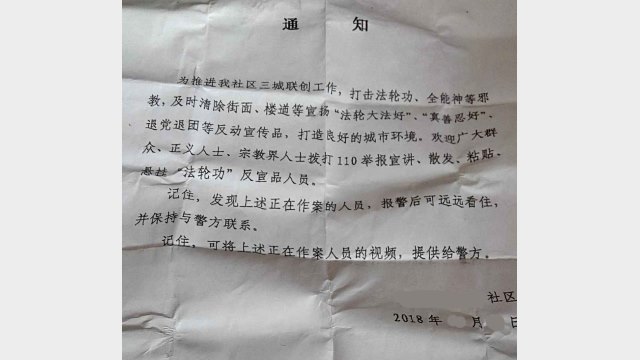 通 知
为推进我社区三城联创工作，打击法轮功、全能神等邪
教，及时清除街面、楼道等宣扬“法轮大法好”、“真善忍好”、
退党退团等反动宣传品，打造良好的城市环境。欢迎广大群
众、正义人士、宗教界人士拨打110举报宣讲、散发、粘贴、
悬挂“法轮功”反宣品人员。
记住，发现上述正在作案的人员，报警后可远远看住，
并保持与警方联系。
记住，可将上述正在作案人员的视频，提供给警方。
社区
2018 年 月 日